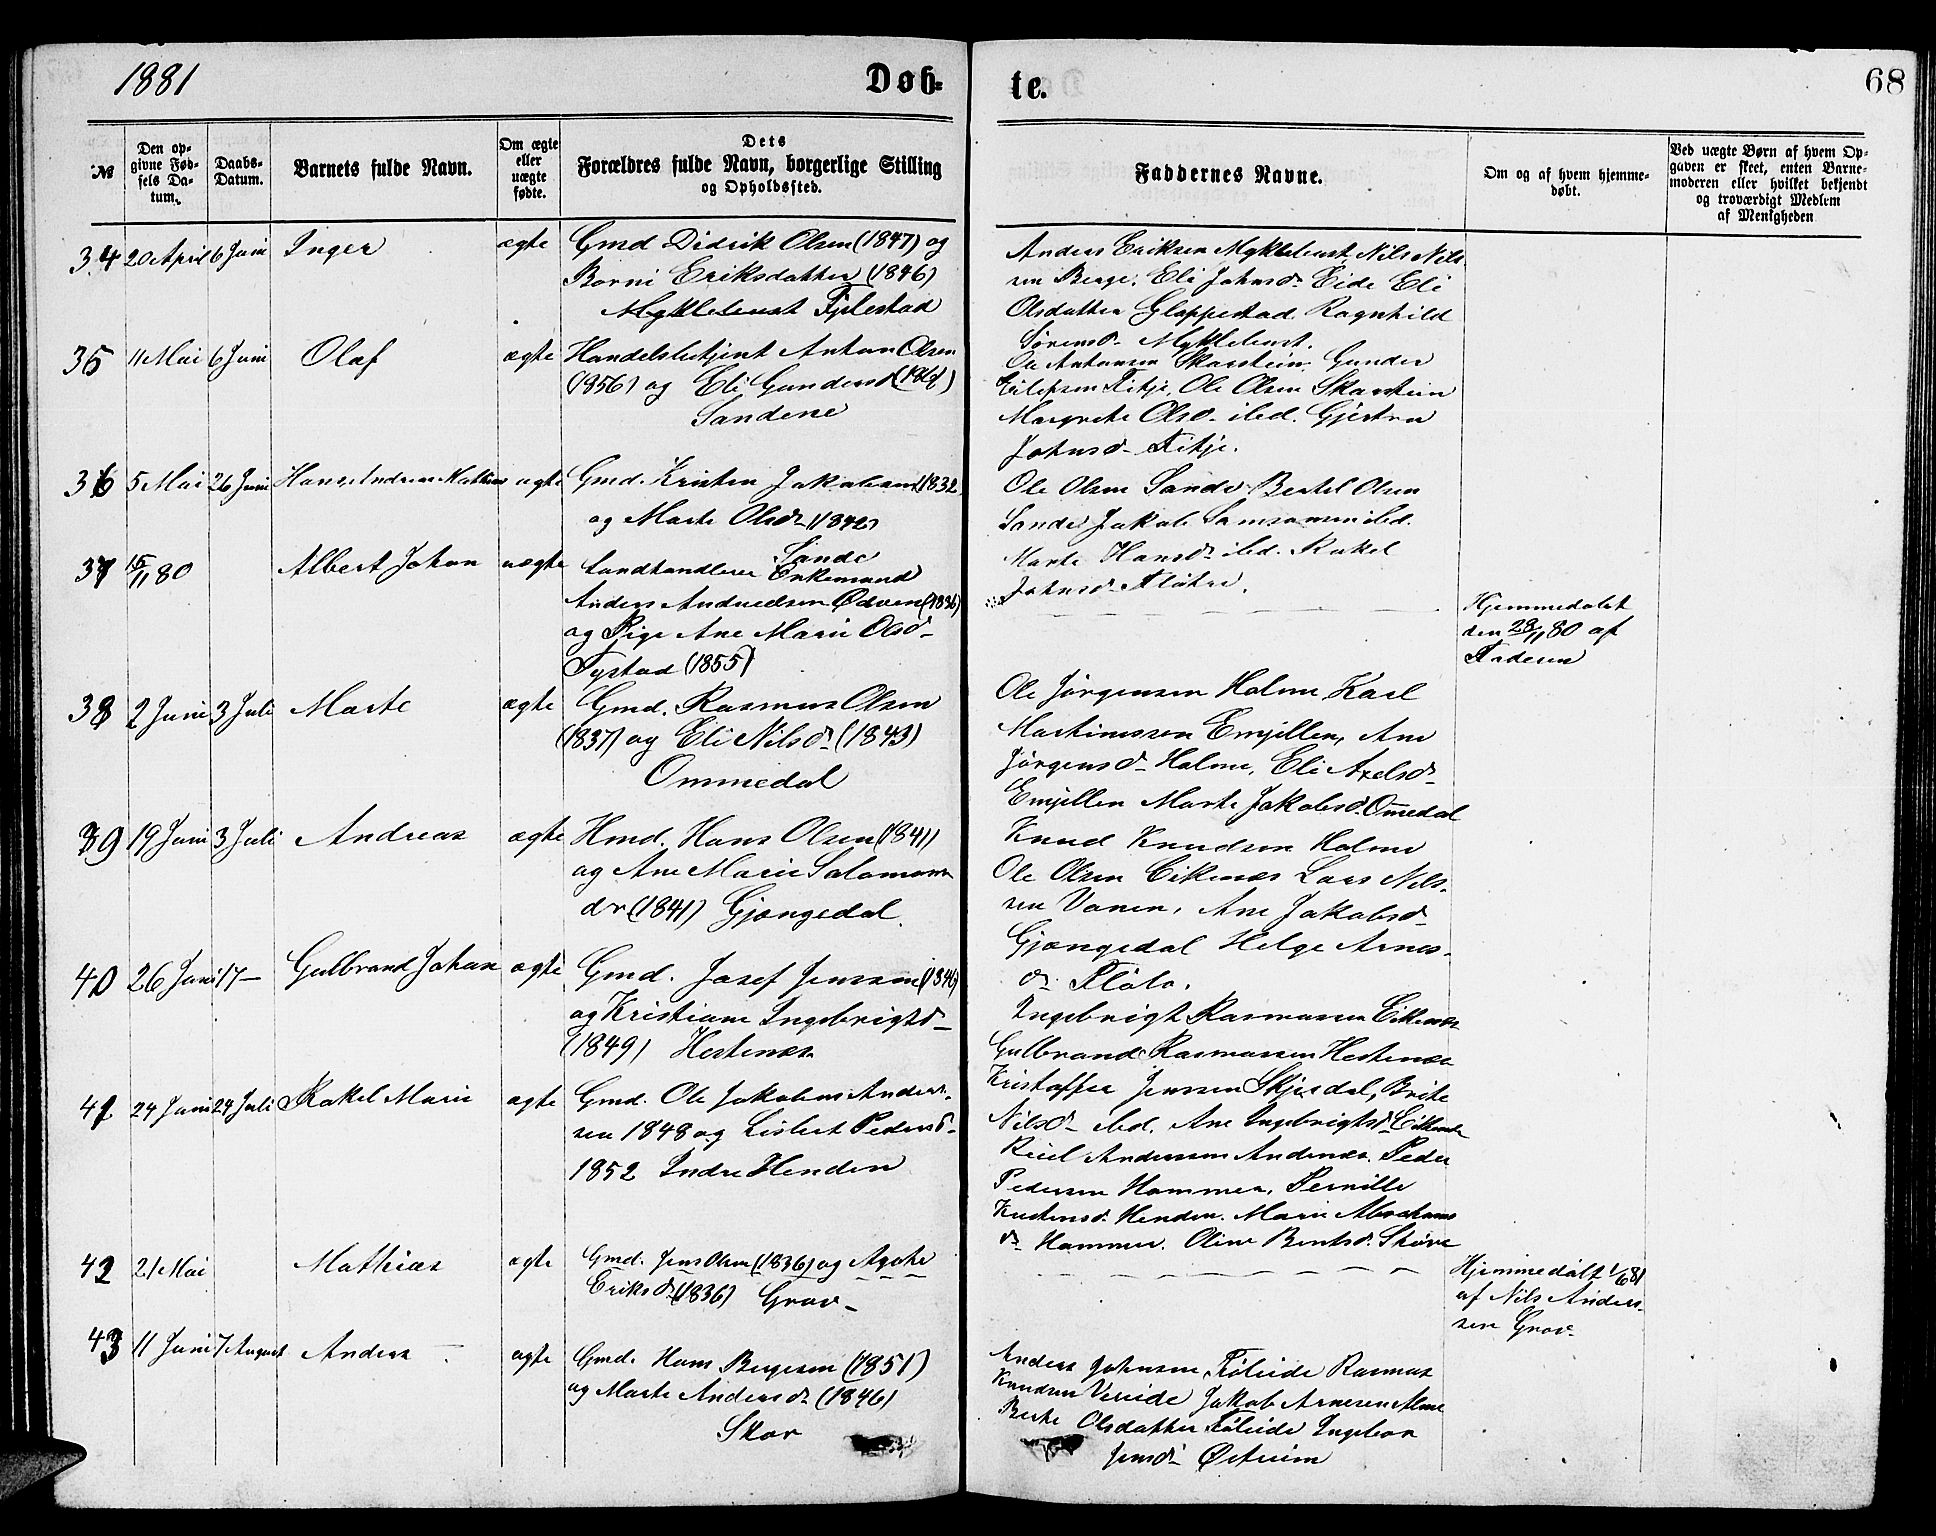 1881
Døb-
te.
68
№
Den op-
givne Fød-
sels Da-
tum.
Daabs-
Datum.
Barnets fulde Navn.
Om ægte
eller
uægte
fødte.
Dets
Forældres fulde Navn, borgerlige Stilling
og Opholdssted.
Faddernes Navne.
Om og af hvem hjemme-
døbt.
Ved uægte Børn af hvem Op-
gaven er skeet, enten Barne-
moderen eller hvilket bekjendt
og troværdigt Medlem
af Menigheden
34 20 April 6 Juni Inger ægte Gmd Didrik Olsen (1847) og
Borni Eriksdatter (1846)
Myklebust Fjelestad
Anders Eriksen Myklebust, Nils Nils-
sen Berge, Eli Johnsd. Eide Eli
Olsdatter Gloppestad Ragnhild
Sørensd. Myklebust.
35 11 Mai 6 Juni Olaf ægte Handelsbetjent Anton Olsen
(1856) og Eli Gundersd. (1861)
Sandene
Ole Antonsen Skarstein Gunder
Eilefsen Fitje, Ole Olsen Skarstein
Margrete Olsd. ibid. Gjertru
Johnsd. Fitje.
36 5 Mai 26 Juni Hans Andreas Mathias ægte Gmd. Kristen Jakobsen (1832
og Marte Olsd. (1842)
Sande
Ole Olsen Sande Bertel Olsen
Sande Jakob Samsonsen ibd.
Marte Hansd. ibd. Rakel
Johnsd. Fløtre.
37 15/11 80 Albert Johan uægte Landhandler Enkemand
Anders Andreassen Ødven (1836)
og Pige Ane Marie Olsd.
Tystad (1855)
Hjemmedøbt
den 28/11 80 af
Faderen
38 2 Juni 3 Juli Marte ægte Gmd. Rasmus Olsen
(1837) og Eli Nilsd. (1843)
Ommedal
Ole Jørgensen Holme Karl
Martinussen Emjellen, Ane
Jørgensd. Holme, Eli Axelsd.
Emjellen Marte Jakobsd. Omedal
39 19 Juni 3 Juli Andreas ægte Hmd. Hans Olsen (1841)
og Ane Marie Salomons
dr (1841) Gjengedal.
Knud Knudsen Holme
Ole Olsen Eikenæs Lars Nils-
sen Vonen, Ane Jakobsd.
Gjengedal Helge Arnes-
d. Fløtre.
40 26 Juni 17 – Gulbrand Johan ægte Gmd. Josef Jenssen (1846)
og Kristiane Ingebrigtsd.
(1849) Hestenæs
Ingebrigt Rasmussen Eikenæs
Gulbrand Rasmussen Hestenæs
Kristoffer Jenssen Skjerdal, Brite
Nilsd. ibd. Ane Ingebrigtsd. Eikenæs
41 24 Juni 24 Juli Rakel Marie ægte Gmd. Ole Jakobus Anders-
sen 1848 og Lisbet Pedersd.
1852 Indre Henden
Reiel Anderssen Andenæs. Peder
Pedersen Hammer, Pernille
Knutsensd. Henden. Marie Abrahams
d. Hammer. Oline Berntsd. Skøre
42 21 Mai Mathias ægte Gmd. Jens Olsen (1836) og Agote
Eriksd. (1836) Grov
Hjemmedøbt 1/6 81
af Nils Anders-
sen Grov
43 11 Juni 7 August Anders ægte Gmd. Hans Bergesen (1851)
og Marte Andersd. (1846)
Skor
Anders Johnsen Føleide Rasmus
Knudsen Vereide Jakob Arnesen Alme
Berte Olsdatter Føleide Ingebor
Jensd. Østreim